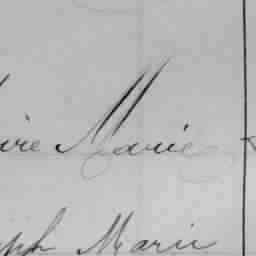 ire Marie
ph Marie